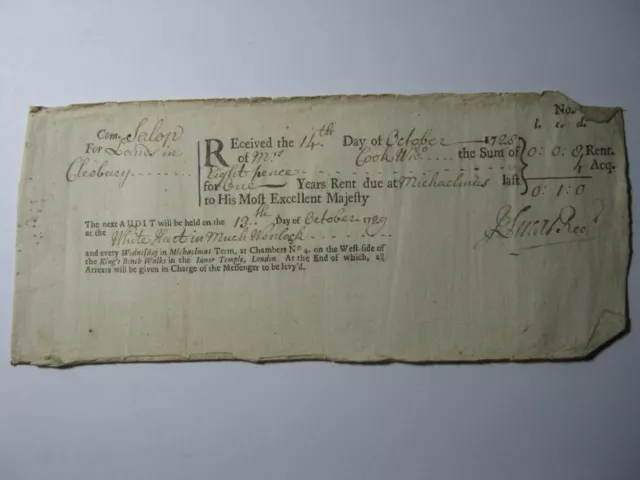 No.
l. s. d.
Com. Salop
For Lands in
Cleobury
REceived the 14th Day of October 1728
of Mrs Cook Wid: the Sum of
Eight pence
for One Years Rent due at Michaelmas last
to His Most Excellent Majesty
0: 0: 8 Rent.
4 Acq.
0: 1: 0
The next AUDIT will be held on the 13th Day of October 1729
at the White Hart in Much Wenlock
and every Wednesday in Michaelmas Term, at Chambers No 4. on the West-side of
the King's Bench Walks in the Inner Temple, London. At the End of which, all
Arrears will be given in Charge of the Messenger to be levy'd.
Recr